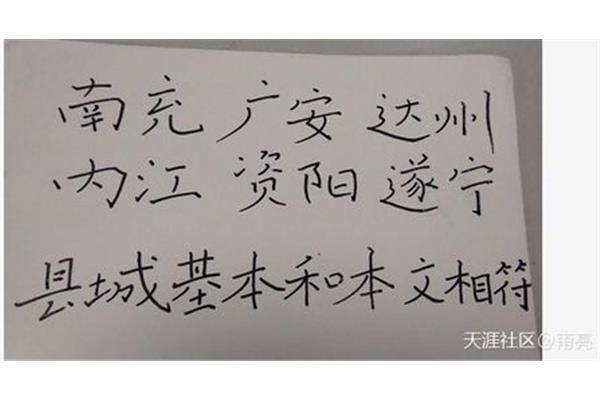 南充 广安 达州
内江 资阳 遂宁
县城基本和本文相符
天涯社区@雨亮